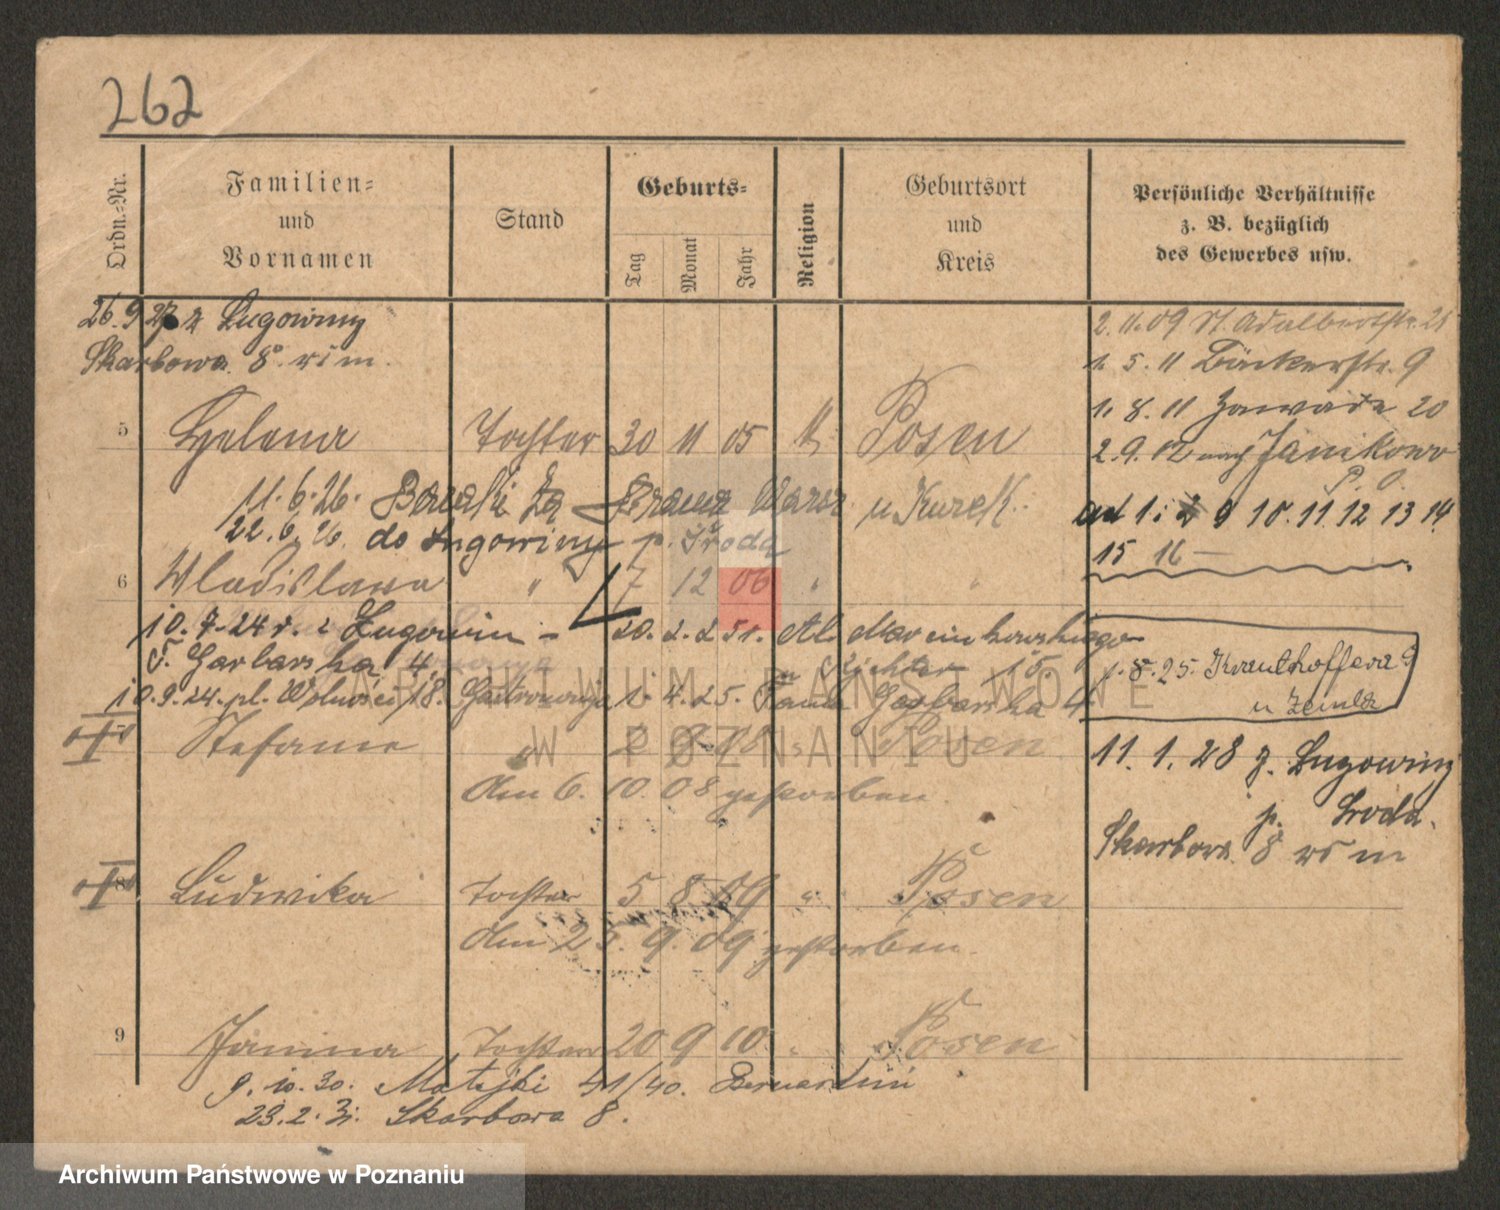 262
Ordn.-Nr.
Familien-
und
Vornamen
Stand
Geburts-
Tag
Monat
Jahr
Religion
Geburtsort
und
Kreis
Persönliche Verhältnisse
z. B. bezüglich
des Gewerbes usw.
26.9 27 z Lugowiny
Skarbowa 8
2. 11. 09 St. Adalbertstr. 21
1. 5. 11 Bäckerstr. 9
1. 8. 11 Zawade 20
5 Helena Tochter 30 11 05 Posen
2. 9. 12 nach Janikowo
P. O.
11. 6. 26.
u Kurek
1. 2 9 10. 11. 12 13 14
22. 6. 26. do Lugowiny p. Środa
15 16 —
6 Wladislawa " 7 12 06 " "
10. 7. 24 r. z Lugowin - 20. 2. 251. Al. Marcinkowskiego
5. Garbarska 4
1. 8. 25. Krauthoffera 9
10. 9. 24. pl. Wolności 18. 1. 4. 25. Garbarska 4
Stefanie " Posen
11. 1. 28 z. Lugowiny
p. Środa.
den 6. 10. 08 gestorben.
Skarbowa 8
8 Ludwika Tochter 5 8 09 " Posen
den 25. 9. 09 gestorben.
9 Janina Tochter 20 9 10 " Posen
9. 10. 30. Matejki 41/40.
23. 2. 31. Skarbowa 8.
ARCHIWUM PAŃSTWOWE
W POZNANIU
Archiwum Państwowe w Poznaniu